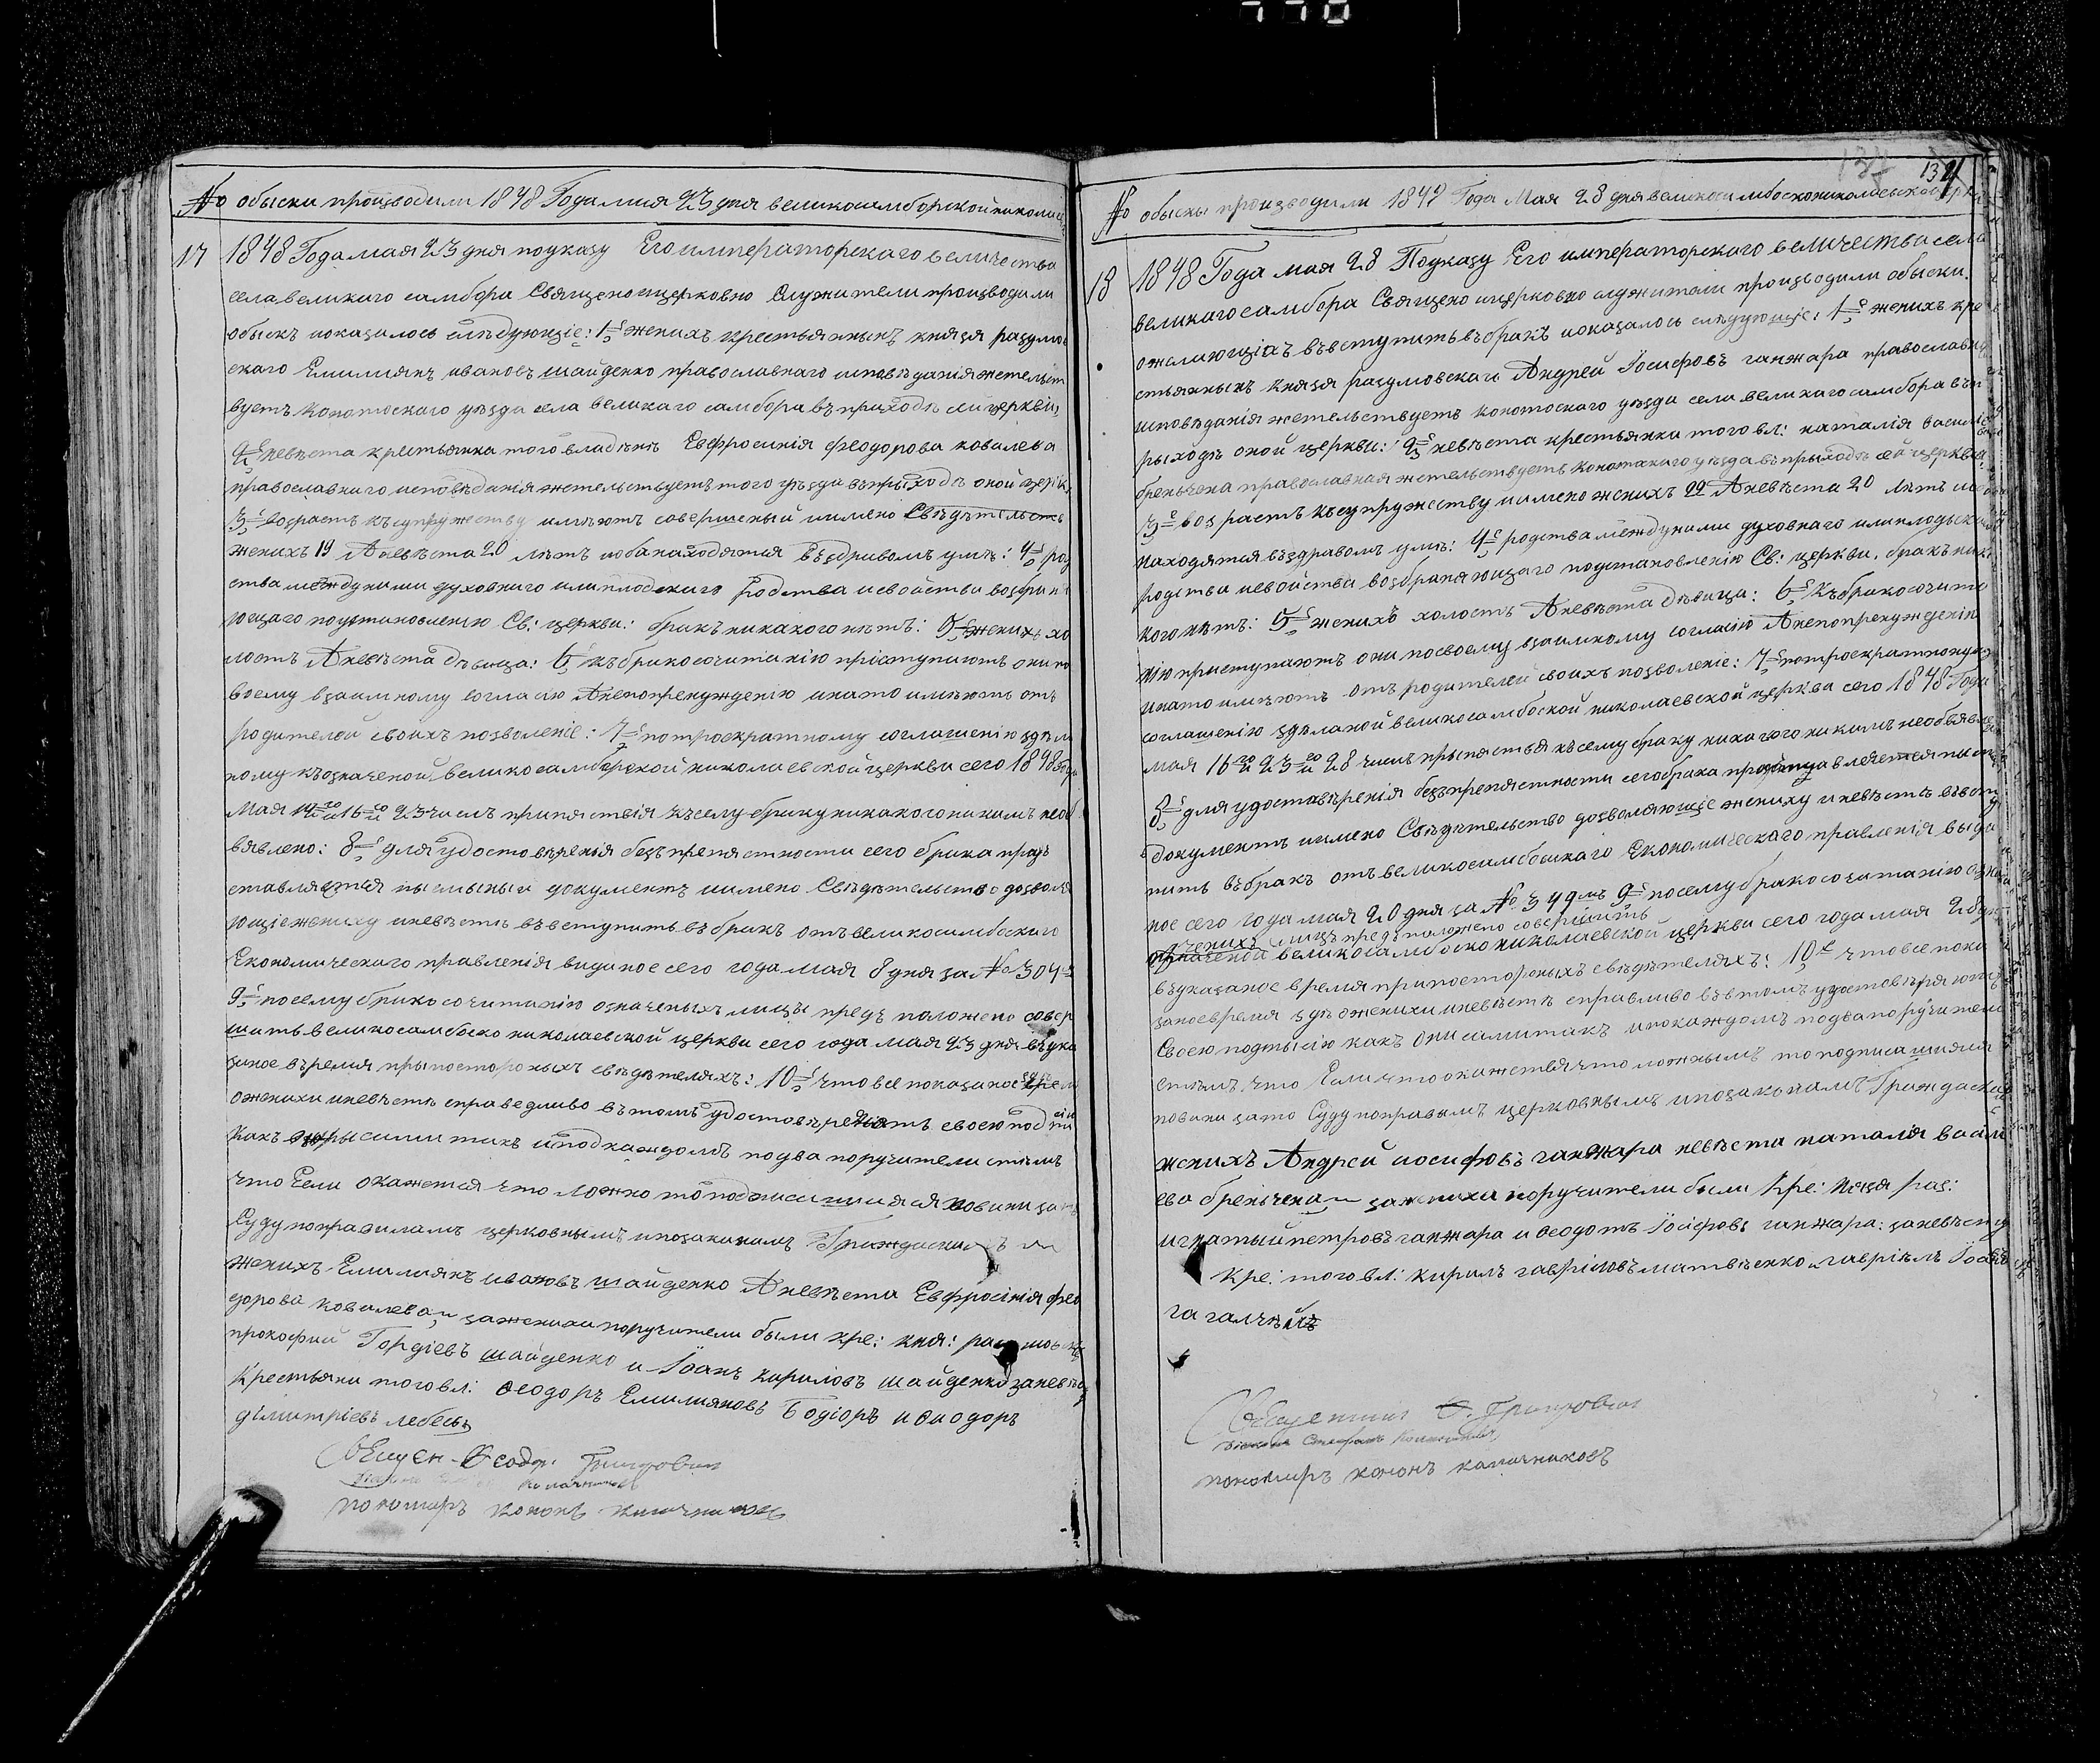 770
№ обыски произвӧдили 1848 Года мая 23 дня великосамборской николаев
17 1848 Года мая 23 дня поуказу Его императорскаго величества
села великаго самбора Священоицерковно Служители производили
обыскъ показалось слѣдующіе: 1е женихъ крестьяныкъ князя разумов
скаго Емилиянъ ивановъ шайденко православнаго исповѣданія жетельст
вуетъ конотоскаго уѣзда села великаго самбора въ приходѣ сей церкви,
2е невѣста крестьянка того владѣнія Евфросинія феодорова ковалева
православнаго исповѣданія жетельствуетъ того уѣзда въ прыходѣ оной церкви
3е возрастъ къ супружеству имѣютъ совершеный имено Свѣдѣтельств
женихъ 19 А невѣста 20 лѣтъ иоба находятся въздравомъ умѣ: 4е род
ства между ними духовнаго или плодскаго родства и свойства возбраня
ющаго поустановленію Св: церкви: бракъ никакого нѣтъ: 5е женихъ хо
лостъ А невѣста дѣвица: 6е къ бракосочитанію пріступаютъ они по
воему взаимному согласію А непопренужденію инато имѣютъ отъ
родителей своихъ позволеніе: 7е потроекратному соглашенію здѣла
ному къозначеной великосамборской николаевской церкви сего 1848 года
Мая 14го 16го и 23 числъ припяствія къ сему браку никакого никимъ необ
вявлено: 8е для удостовѣренія безъпрепяственности сего брака предъ
ставляется пысмыный документъ имено Свѣдѣтельство дозволя
ющіе жениху иневѣстѣ въ вступитъ въ бракъ отъ великосамбоскаго
Економическаго правленія виданое сего года мая 8 дня за № 304м
9е посему бракосочитанію означеныхъ лицъ предъ положено совер
шать великосамбоско николаевской церкви сего года мая 23 дня въука
заное въремя прыпостороныхъ свѣдѣтеляхъ: 10е что все показаное здѣ
ожених и невѣстѣ справедливо въ томъ удостовѣреютъ своею подписію
Какъ сами такъ и под каждомъ по два поручители стѣмъ
что Если окажется что ложно то подписавшияся повини зато
Суду поправиламъ церковнымъ ипозаконамъ Граждаскимъ
женихъ Емилиянъ ивановъ шайденко А невѣста Евфросинія фео
дорова ковалева, зажениха поручители были кре: кня: разумовск
прокофий Гордіевъ шайденко и Іоанъ кириловъ шайденко заневѣсту
Крестьяни того вл: Феодоръ Емилияновъ Бодіоръ и Феодоръ
дімитріевъ лебедь
Священ. Феодор Григорович
пономаръ кононъ калачниковъ
134
№ обыски производили 1848 Года Мая 28 дня великосамбоскониколӓевской церкви
18 1848 Года мая 28 Поуказу Его императорскаго величества села
великаго самбора Священо ицерковно служители производили обыски
ожелающіхъ въвступить въ бракъ показалось слѣдующіе: 1е женихъ кре
стьяныкъ князя разумовскаго Андрей Іосифовъ ганжара православнаго
исповѣданія жетельствуетъ конотоскаго уѣзда села великаго самбора въ п
рыходѣ оной церкви: 2е невѣста крестьянка того вл: наталія василіева
бреньчена православная жетельствуетъ конотскаго уѣзда въ прыходѣ сей церкви:
3е возрастъ къ супружеству имено женихъ 22 А невѣста 20 лѣтъ и оба
находятся въ здравомъ умѣ: 4е родства между ними духовнаго или плодскаго
родства и свойства возбраняющаго поустановленію Св: церкви, бракъ ника
кого нѣтъ: 5е женихъ холостъ А невѣста дѣвица: 6е къ бракосочита
нію приступаютъ они посвоему взаимному согласію А непопренужденію
инато имѣютъ отъ родителей своихъ позволеніе: 7е потроекратному
соглашенію здѣланой великосамбоской николаевской церкви сего 1848 Года
мая 16го 23го и 28 числъ прыпяствія къ сему браку никакого никимъ необъявлено
8е для удоставѣренія безпрепястности сего брака представляется пысм
документъ имено Свѣдѣтельство дозволяющіе жениху иневѣстѣ въвсту
пить въ бракъ отъ великосамбоскаго Економическаго правленія выда
ное сего года мая 20 дня за № 349мъ 9е посему бракосочитанію озна
ченихъ лицъ предъ положено совершить
великосамбоско николаевской церкви сего года мая 28 дня
въуказаное время припостороныхъ свѣдѣтеляхъ: 10е что все пока
заное время здѣ ожениха иневѣстѣ справливо въвтомъ удостовѣряютъ
Своею подписію какъ они сами такъ ипокаждомъ подва поручители
стѣмъ что Если что окажется что ложнымъ то подписавшияся
повини зато Суду поправамъ церковнымъ ипозаконамъ Граждаским
женихъ Андрей иосифовъ ганжара невѣста наталія васил
ева бреньчена зажениха поручители были Кре: князя раз:
игнатый петровъ ганжара и Феодотъ Іосіфовъ ганжара: заневѣсту
Кре: того вл: кирилъ гавріловъ матвѣенко и гавріилъ Іоан
гагалчѣй
Священник Ф. Григорович
пономаръ кононъ калачниковъ